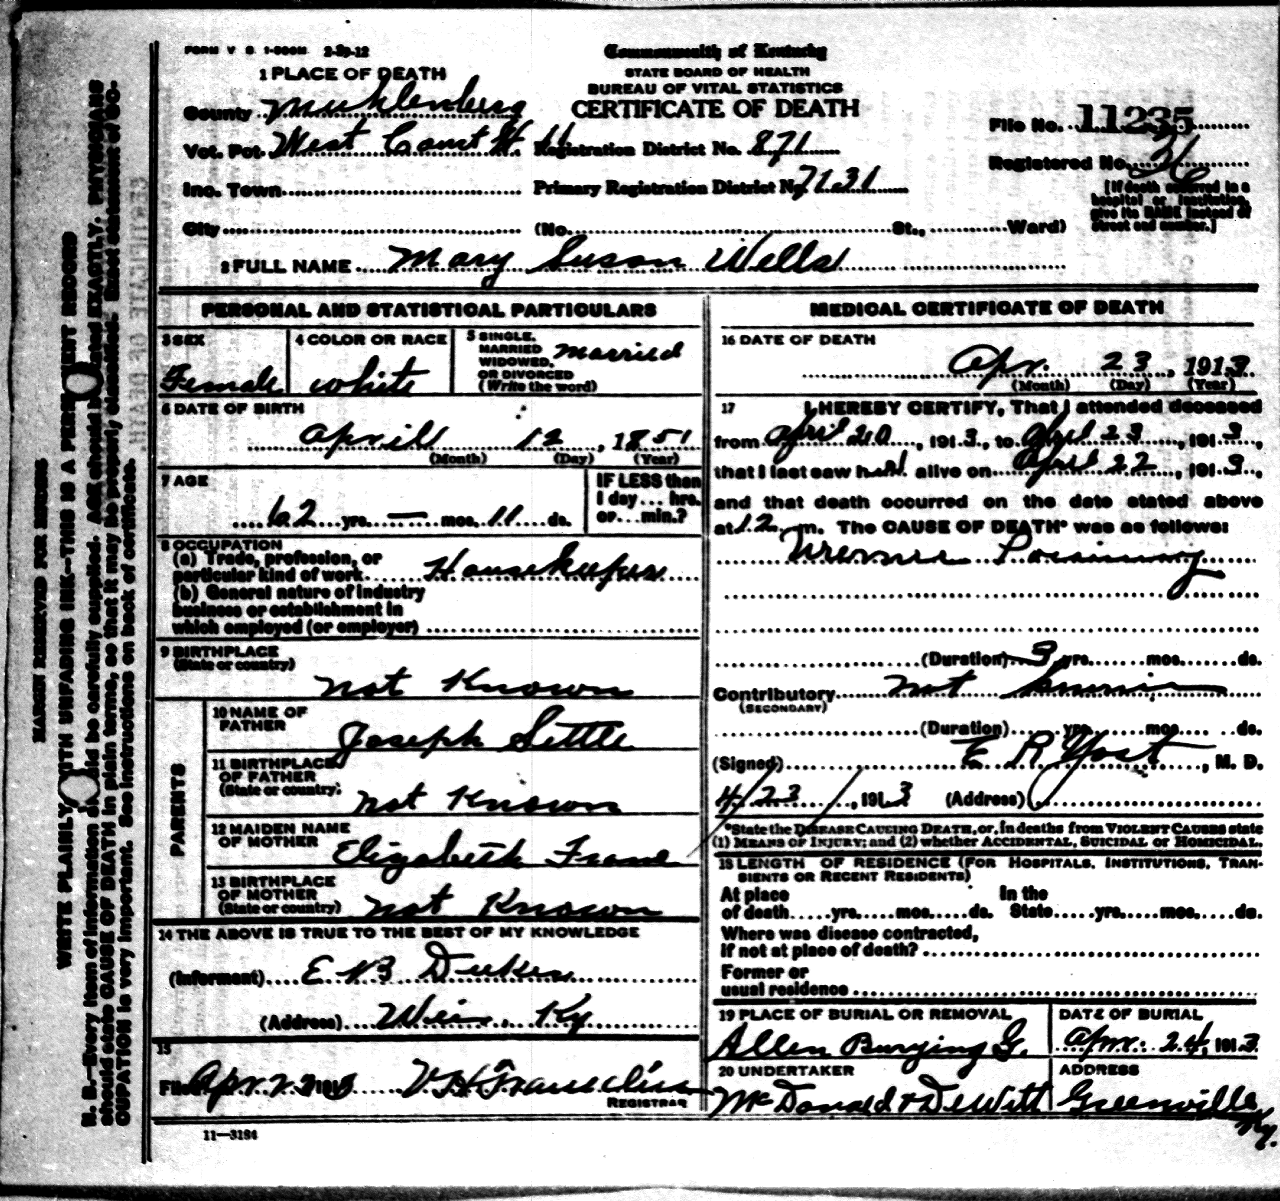 FORM V. S. 1-500M 2-29-12
Commonwealth of Kentucky
STATE BOARD OF HEALTH
BUREAU OF VITAL STATISTICS
CERTIFICATE OF DEATH
1 PLACE OF DEATH
County Muhlenberg
Vot. Pct. West Court H.
Inc. Town
City
Registration District No. 871
Primary Registration District No. 7131
(No. St., Ward)
File No. 11235
Registered No. 26
[If death occurred in a
hospital or institution,
give its NAME instead of
street and number.]
2 FULL NAME Mary Susan Wells
PERSONAL AND STATISTICAL PARTICULARS
3 SEX
Female
4 COLOR OR RACE
white
5 SINGLE,
MARRIED
WIDOWED,
OR DIVORCED
(Write the word)
married
6 DATE OF BIRTH
April 12, 1851
(Month) (Day) (Year)
7 AGE
62 yrs. — mos. 11 ds.
IF LESS than
1 day ... hrs.
or ... min.?
8 OCCUPATION
(a) Trade, profession, or
particular kind of work Housekeeper
(b) General nature of industry
business or establishment in
which employed (or employer)
9 BIRTHPLACE
(State or country)
not Known
PARENTS
10 NAME OF
FATHER
Joseph Settle
11 BIRTHPLACE
OF FATHER
(State or country)
not Known
12 MAIDEN NAME
OF MOTHER
Elizabeth
13 BIRTHPLACE
OF MOTHER
(State or country)
not Known
14 THE ABOVE IS TRUE TO THE BEST OF MY KNOWLEDGE
(Informant) E N B Dukes
(Address) Weir, Ky
15
Filed Apr 23 1913 V. H.
REGISTRAR
11—3184
MEDICAL CERTIFICATE OF DEATH
16 DATE OF DEATH
Apr. 23, 1913
(Month) (Day) (Year)
17 I HEREBY CERTIFY, That I attended deceased
from April 20, 1913, to April 23, 1913,
that I last saw her alive on April 22, 1913,
and that death occurred on the date stated above
at 12 m. The CAUSE OF DEATH* was as follows:
Uremic Poisining
(Duration) 3 yrs. mos. ds.
Contributory not
(SECONDARY)
(Duration) yrs. mos. ds.
(Signed) E R Yost, M. D.
4/23, 1913 (Address)
*State the DISEASE CAUSING DEATH, or, in deaths from VIOLENT CAUSES state
(1) MEANS OF INJURY; and (2) whether ACCIDENTAL, SUICIDAL or HOMICIDAL.
18 LENGTH OF RESIDENCE (FOR HOSPITALS, INSTITUTIONS, TRAN-
SIENTS OR RECENT RESIDENTS)
At place In the
of death yrs. mos. ds. State yrs. mos. ds.
Where was disease contracted,
if not at place of death?
Former or
usual residence
19 PLACE OF BURIAL OR REMOVAL
Allen Burying G.
DATE OF BURIAL
Apr. 24, 1913
20 UNDERTAKER
McDonald & DeWitt
ADDRESS
Greenville Ky.
MARGIN RESERVED FOR BINDING
WRITE PLAINLY WITH UNFADING INK—THIS IS A PERMANENT RECORD
N. B.—Every item of information should be carefully supplied. AGE should be stated EXACTLY. PHYSICIANS
should state CAUSE OF DEATH in plain terms, so that it may be properly classified. Exact statement of OC-
CUPATION is very important. See instructions on back of certificate.